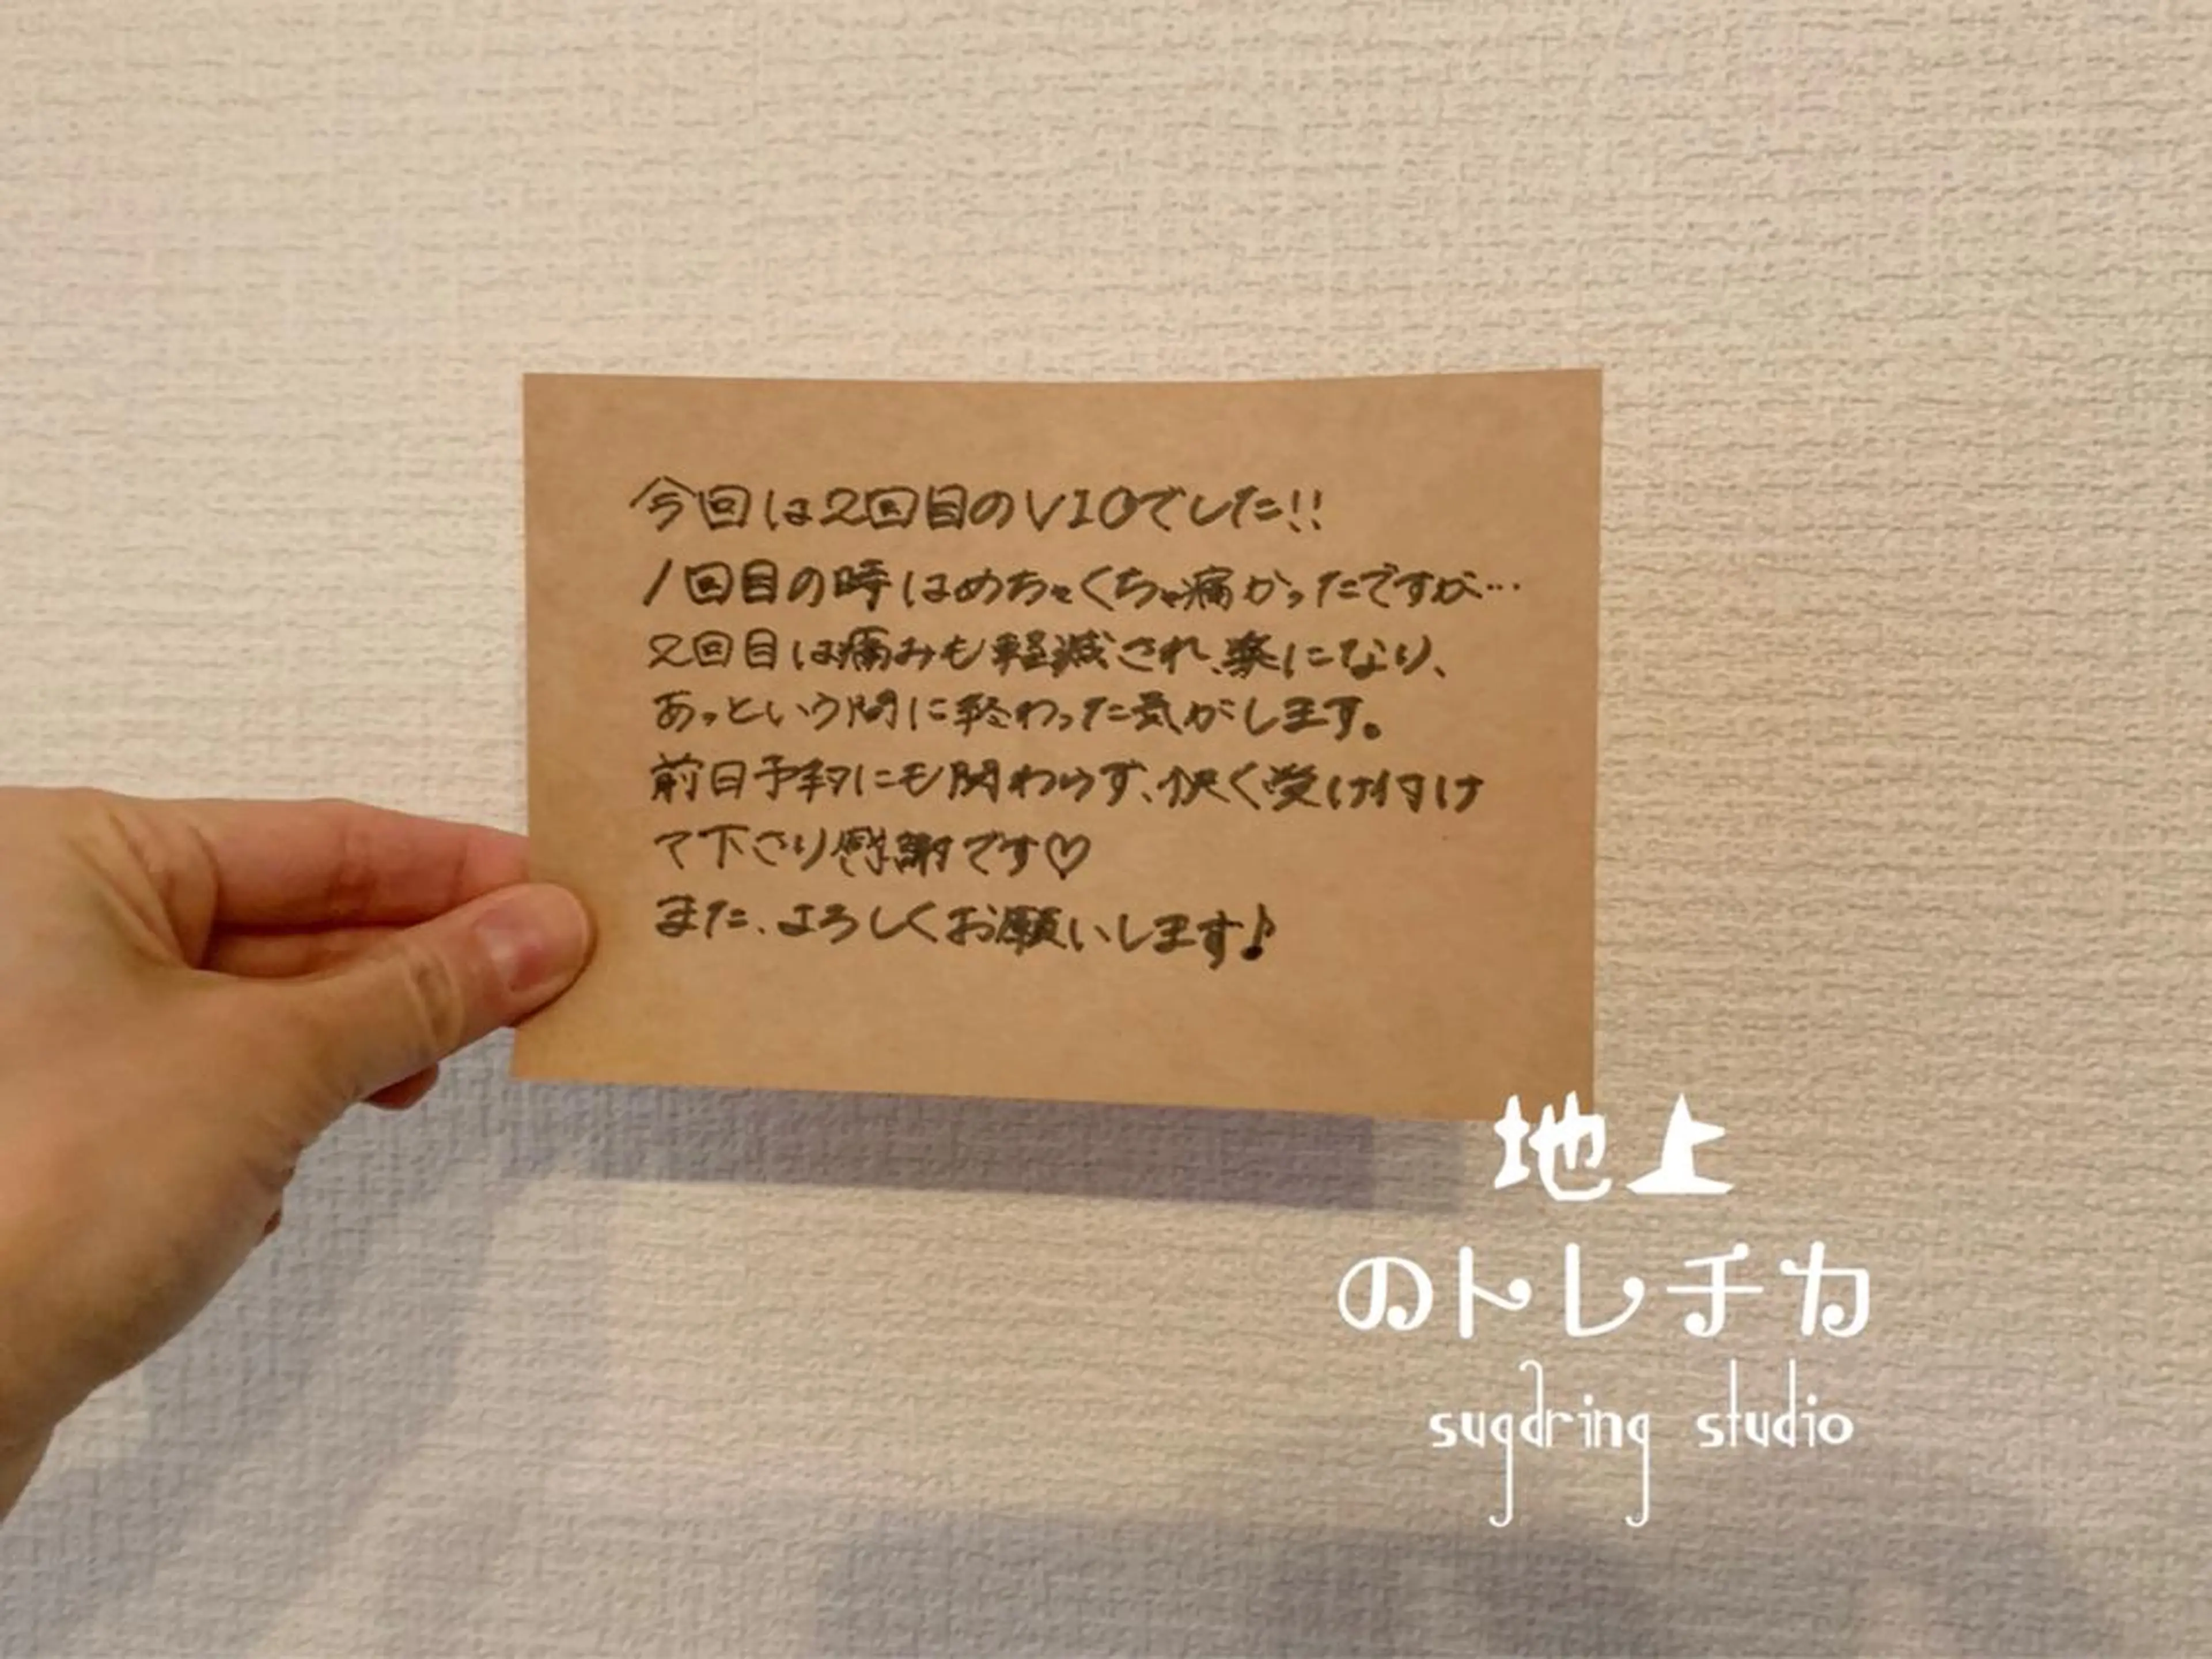 今回は2回目のVIOでした!!
1回目の時はめちゃくちゃ痛かったですが…
2回目は痛みも軽減され、楽になり、
あっという間に終わった気がします。
前日予約にも関わらず、快く受け付け
て下さり感謝です♡
また、よろしくお願いします♪
地上
のトレチカ
sugdring studio